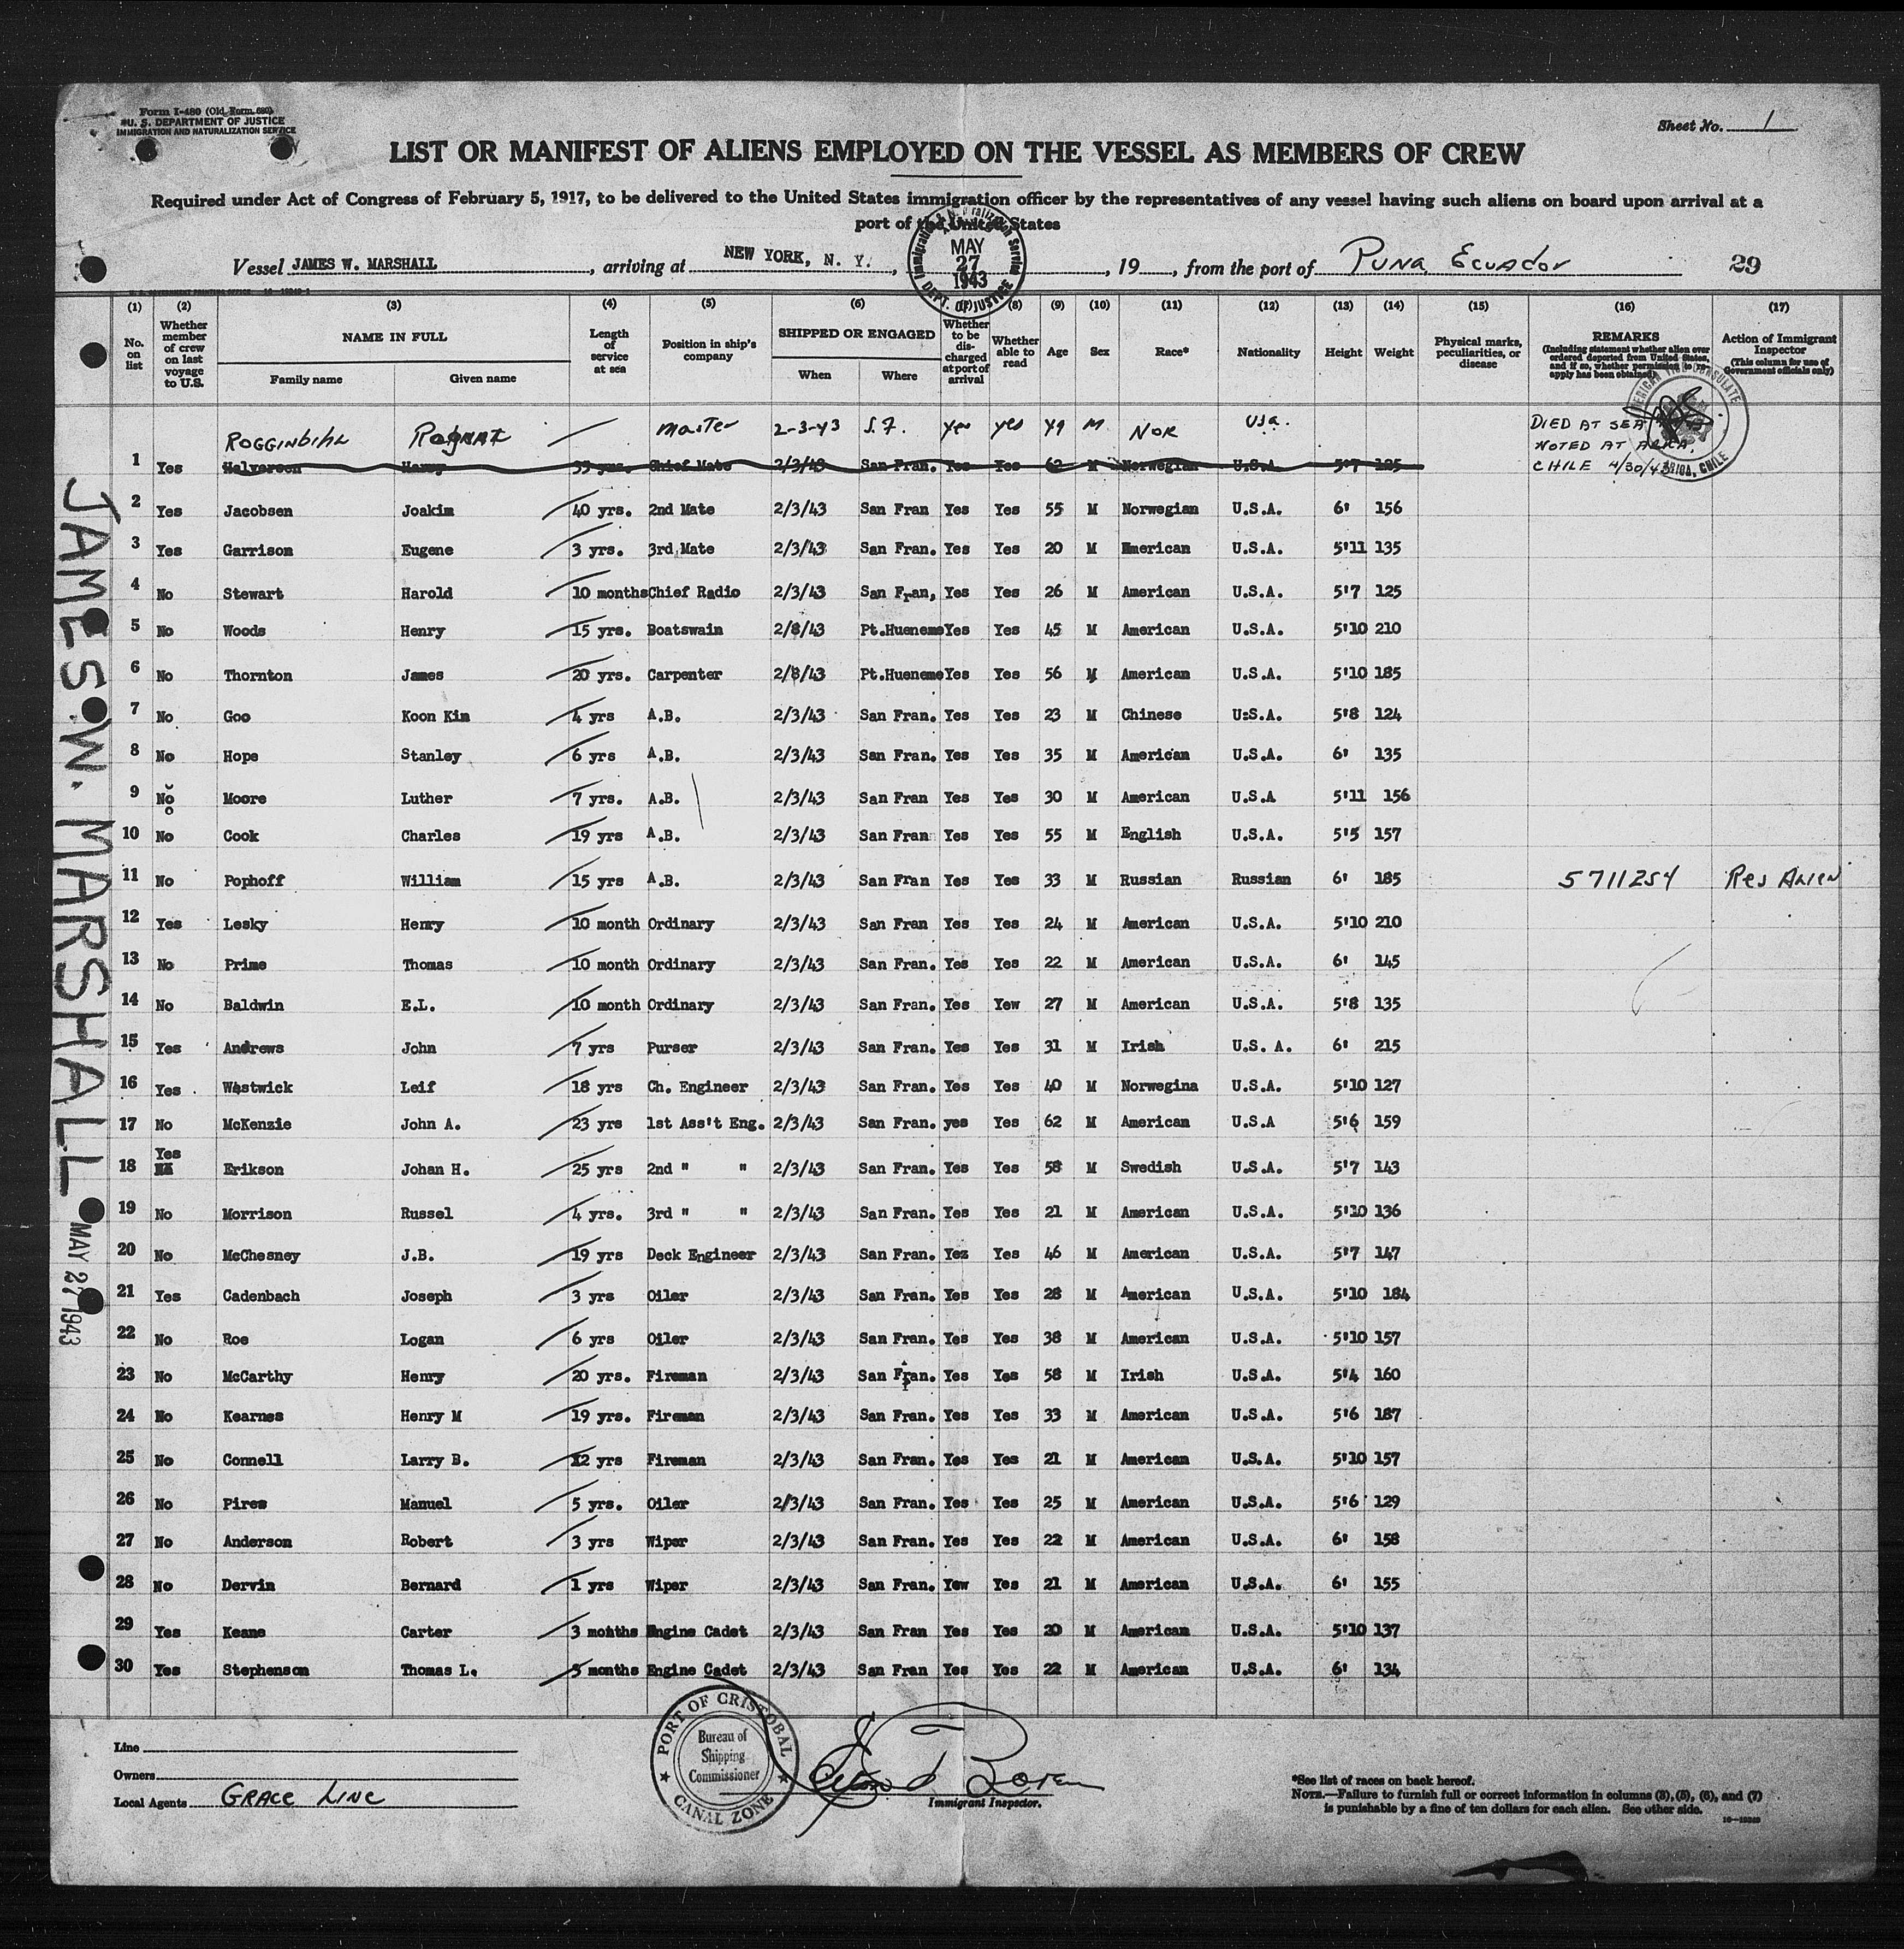 Form I-480 (Old Form 680)
U. S. DEPARTMENT OF JUSTICE
IMMIGRATION AND NATURALIZATION SERVICE
Sheet No. 1
LIST OR MANIFEST OF ALIENS EMPLOYED ON THE VESSEL AS MEMBERS OF CREW
Required under Act of Congress of February 5, 1917, to be delivered to the United States immigration officer by the representatives of any vessel having such aliens on board upon arrival at a
port of the United States
Vessel JAMES W. MARSHALL, arriving at NEW YORK, N. Y., MAY 27 1943, 19, from the port of Puna Ecuador 29
Immigration & Naturalization Service DEPT. OF JUSTICE
(1) (2) (3) (4) (5) (6) (7) (8) (9) (10) (11) (12) (13) (14) (15) (16) (17)
No. on list
Whether member of crew on last voyage to U.S.
NAME IN FULL
Family name Given name
Length of service at sea
Position in ship's company
SHIPPED OR ENGAGED
When Where
Whether to be discharged at port of arrival
Whether able to read
Age
Sex
Race*
Nationality
Height
Weight
Physical marks, peculiarities, or disease
REMARKS
(Including statement whether alien ever ordered deported from United States, and if so, whether permission to reapply has been obtained)
Action of Immigrant Inspector
(This column for use of Government officials only)
ROGGINBIHL Master 2-3-43 S.F. yes yes 49 M NOR USA.
DIED AT SEA
NOTED AT ARICA,
CHILE 4/30/43
AMERICAN VICE CONSULATE ARICA, CHILE
1 Yes Halverson Harry 35 yrs. Chief Mate 2/3/43 San Fran. Yes Yes 62 M Norwegian U.S.A. 5'7 185
2 Yes Jacobsen Joakim 40 yrs. 2nd Mate 2/3/43 San Fran Yes Yes 55 M Norwegian U.S.A. 6' 156
3 Yes Garrison Eugene 3 yrs. 3rd Mate 2/3/43 San Fran. Yes Yes 20 M American U.S.A. 5'11 135
4 No Stewart Harold 10 months Chief Radio 2/3/43 San Fran, Yes Yes 26 M American U.S.A. 5'7 125
5 No Woods Henry 15 yrs. Boatswain 2/8/43 Pt.Hueneme Yes Yes 45 M American U.S.A. 5'10 210
6 No Thornton James 20 yrs. Carpenter 2/8/43 Pt.Hueneme Yes Yes 56 M American U.S.A. 5'10 185
7 No Goo Koon Kim 4 yrs A.B. 2/3/43 San Fran. Yes Yes 23 M Chinese U:S.A. 5'8 124
8 No Hope Stanley 6 yrs A.B. 2/3/43 San Fran. Yes Yes 35 M American U.S.A. 6' 135
9 No Moore Luther 7 yrs. A.B. 2/3/43 San Fran Yes Yes 30 M American U.S.A 5'11 156
10 No Cook Charles 19 yrs A.B. 2/3/43 San Fran Yes Yes 55 M English U.S.A. 5'5 157
11 No Pophoff William 15 yrs A.B. 2/3/43 San Fran Yes Yes 33 M Russian Russian 6' 185 5711254 Res Alien
12 Yes Lesky Henry 10 month Ordinary 2/3/43 San Fran Yes Yes 24 M American U.S.A. 5'10 210
13 No Prime Thomas 10 month Ordinary 2/3/43 San Fran. Yes Yes 22 M American U.S.A. 6' 145
14 No Baldwin E.L. 10 month Ordinary 2/3/43 San Fran. Yes Yew 27 M American U.S.A. 5'8 135
15 Yes Andrews John 7 yrs Purser 2/3/43 San Fran. Yes Yes 31 M Irish U.S. A. 6' 215
16 Yes Westwick Leif 18 yrs Ch. Engineer 2/3/43 San Fran. Yes Yes 40 M Norwegina U.S.A. 5'10 127
17 No McKenzie John A. 23 yrs 1st Ass't Eng. 2/3/43 San Fran. yes Yes 62 M American U.S.A 5'6 159
18 Yes Erikson Johan H. 25 yrs 2nd " " 2/3/43 San Fran. Yes Yes 58 M Swedish U.S.A. 5'7 143
19 No Morrison Russel 4 yrs. 3rd " " 2/3/43 San Fran. Yes Yes 21 M American U.S.A. 5'10 136
20 No McChesney J.B. 19 yrs Deck Engineer 2/3/43 San Fran. Yez Yes 46 M American U.S.A. 5'7 147
21 Yes Cadenbach Joseph 3 yrs Oiler 2/3/43 San Fran. Yes Yes 28 M American U.S.A. 5'10 184
22 No Roe Logan 6 yrs Oiler 2/3/43 San Fran. Yes Yes 38 M American U.S.A. 5'10 157
23 No McCarthy Henry 20 yrs. Fireman 2/3/43 San Fran. Yes Yes 58 M Irish U.S.A. 5'4 160
24 No Kearnes Henry M 19 yrs. Fireman 2/3/43 San Fran. Yes Yes 33 M American U.S.A. 5'6 187
25 No Connell Larry B. 12 yrs Fireman 2/3/43 San Fran. Yes Yes 21 M American U.S.A. 5'10 157
26 No Pires Manuel 5 yrs. Oiler 2/3/43 San Fran. Yes Yes 25 M American U.S.A. 5'6 129
27 No Anderson Robert 3 yrs Wiper 2/3/43 San Fran. Yes Yes 22 M American U.S.A. 6' 158
28 No Dervin Bernard 1 yrs Wiper 2/3/43 San Fran. Yew Yes 21 M American U.S.A. 6' 155
29 Yes Keane Carter 3 months Engine Cadet 2/3/43 San Fran Yes Yes 20 M American U.S.A. 5'10 137
30 Yes Stephenson Thomas L. 5 months Engine Cadet 2/3/43 San Fran Yes Yes 22 M American U.S.A. 6' 134
JAMES W. MARSHALL MAY 27 1943
Line
Owners
Local Agents Grace Line
PORT OF CRISTOBAL
Bureau of
Shipping
Commissioner
CANAL ZONE
Immigrant Inspector.
*See list of races on back hereof.
NOTE.—Failure to furnish full or correct information in columns (3), (5), (6), and (7)
is punishable by a fine of ten dollars for each alien. See other side.